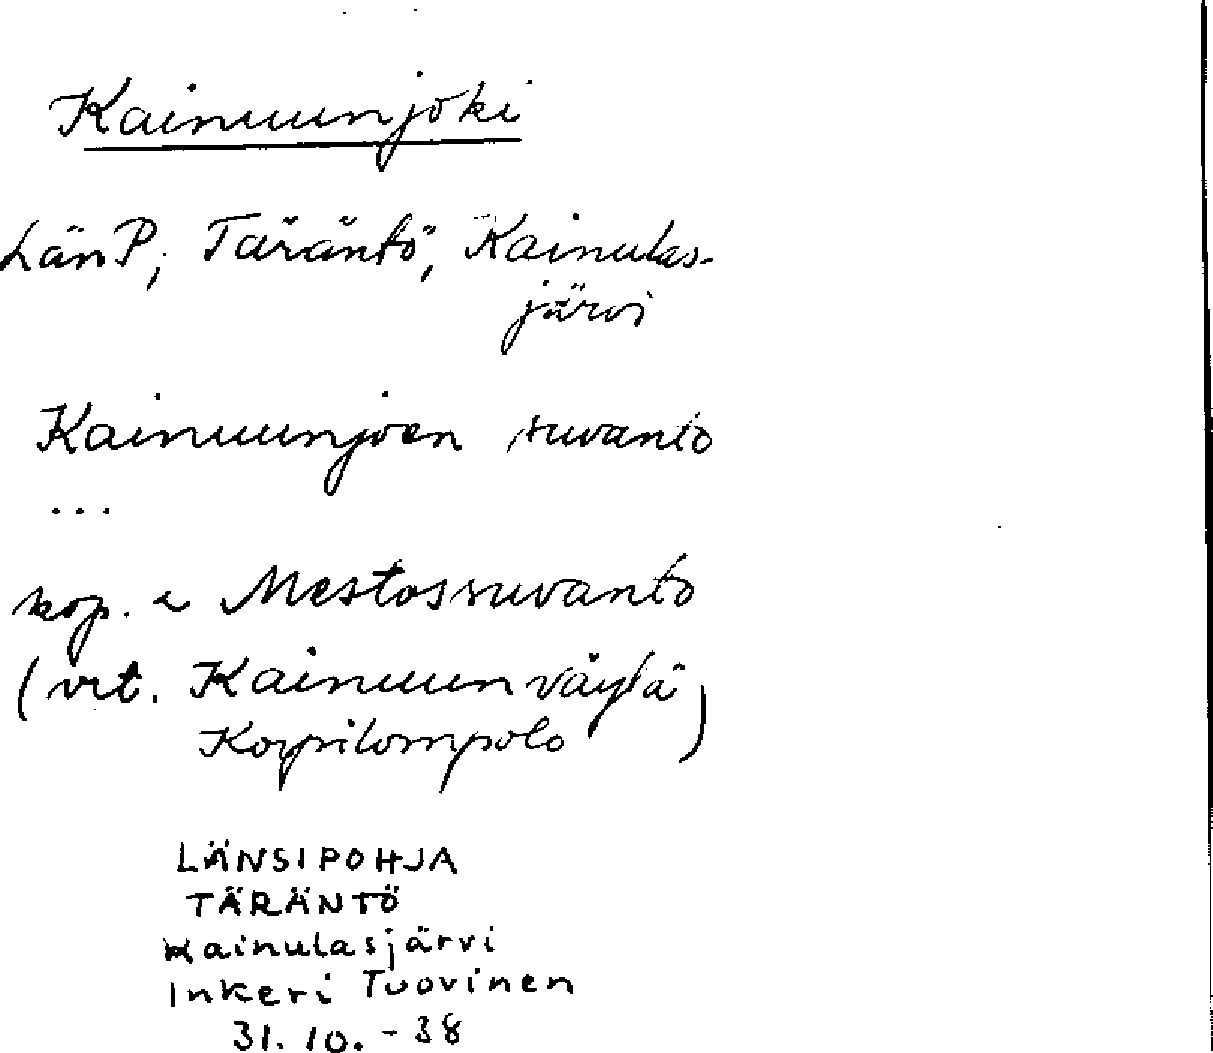 Kainuunjoki
LänP; Täräntö, Kainulas-
järvi
Kainuunjoen suvanto
...
kop. Mestossuvanto
(vrt. Kainuunväylä,
Korpilompolo)
LÄNSIPOHJA
TÄRÄNTÖ
Kainulasjärvi
Inkeri Tuovinen
31.10.-38